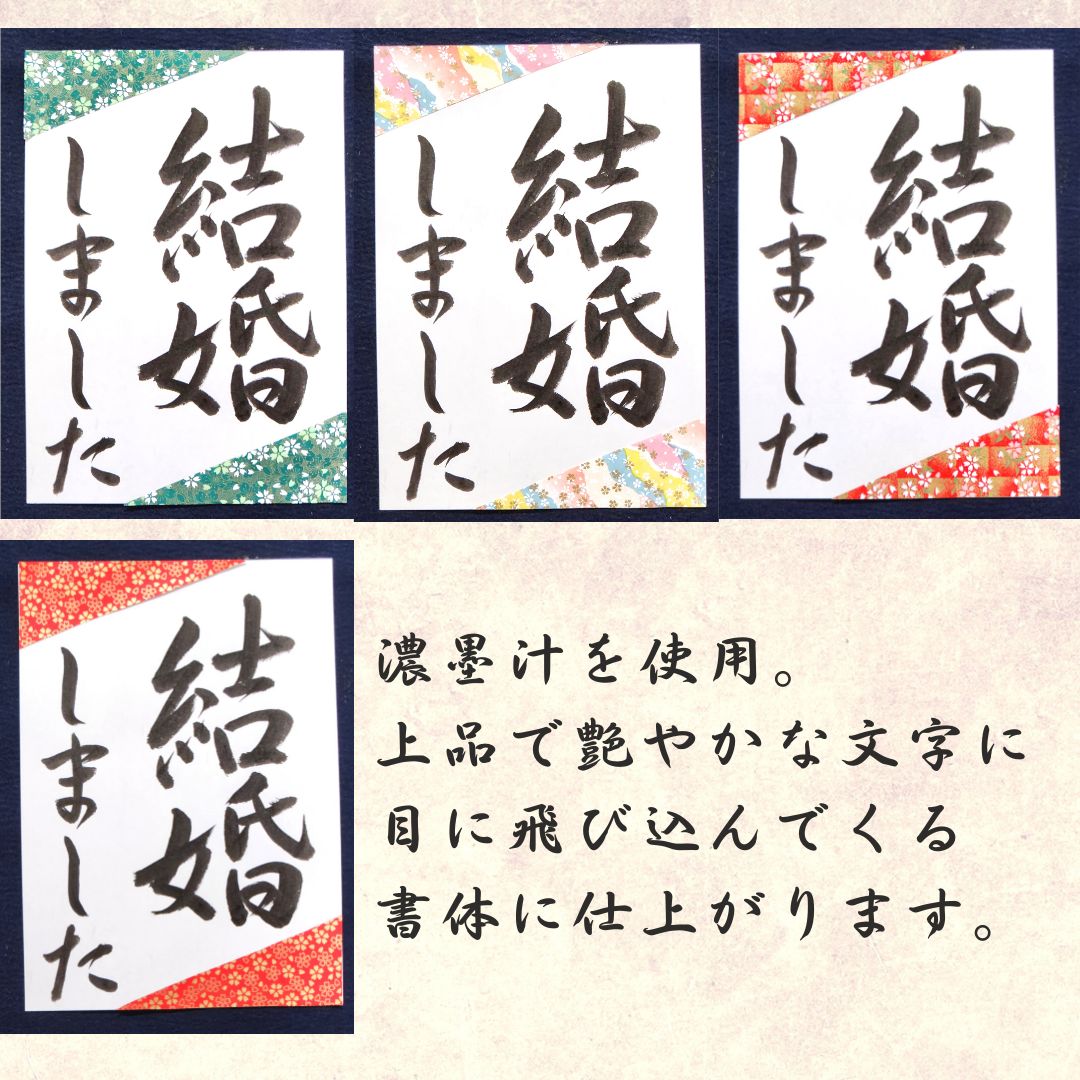 結婚
しました
結婚
しました
結婚
しました
結婚
しました
濃墨汁を使用。
上品で艶やかな文字に
目に飛び込んでくる
書体に仕上がります。